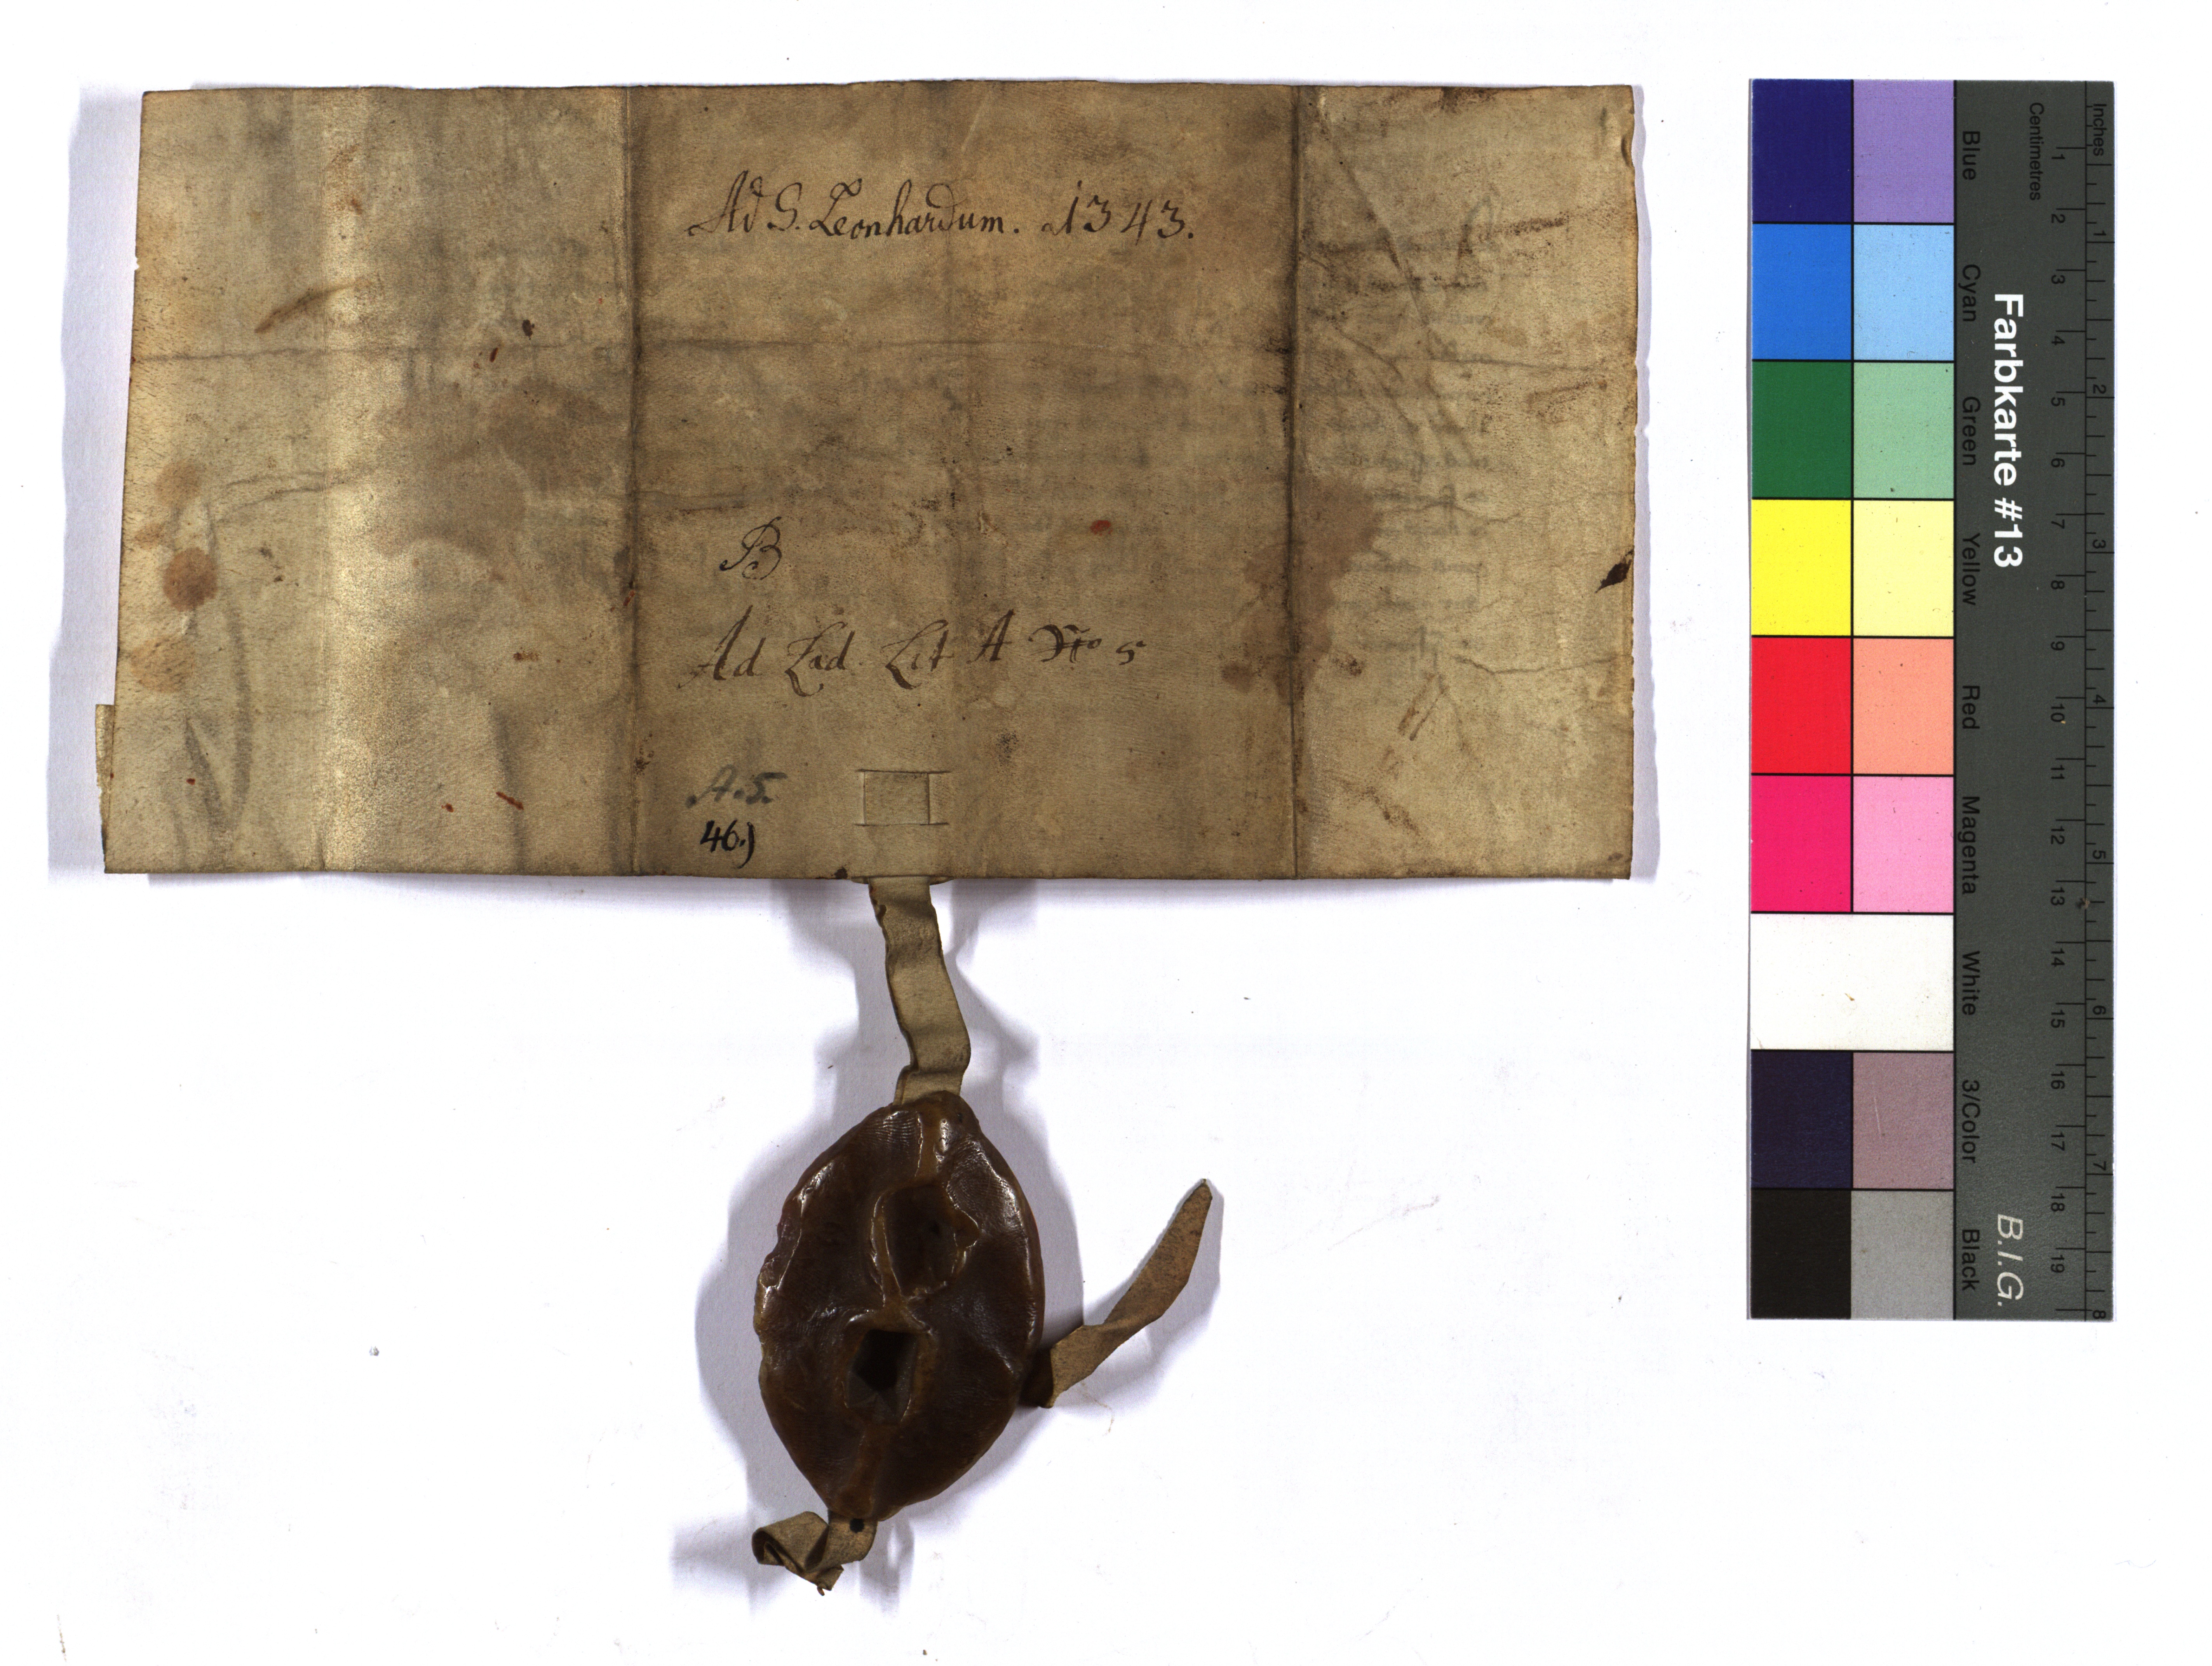 Ad S. Leonhardum. 1343.
B
Ad Lad. Lit A No 5
A.5.
46.)
Farbkarte #13
B.I.G.
Inches
Centimetres
1 2 3 4 5 6 7 8 9 10 11 12 13 14 15 16 17 18 19
1 2 3 4 5 6 7 8
Blue
Cyan
Green
Yellow
Red
Magenta
White
3/Color
Black